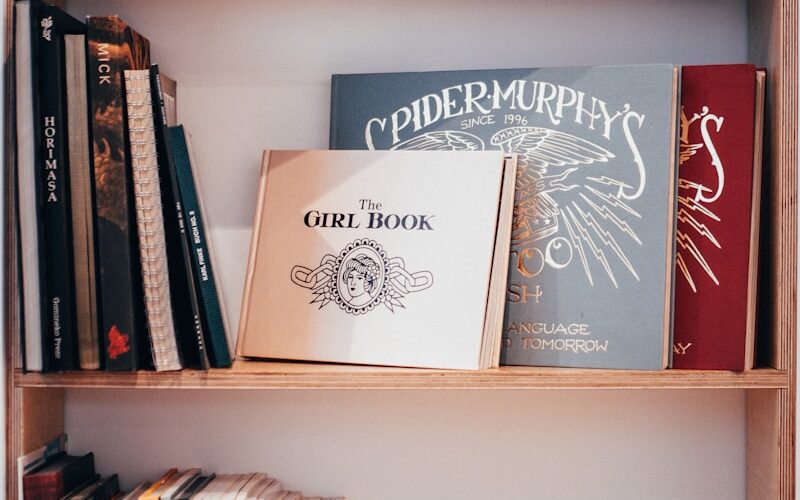 HORIMASA
Gomineko Press
MICK
The
GIRL BOOK
SPIDER·MURPHY'S
SINCE 1996
OO
SH
ANGUAGE
TOMORROW
S
AY